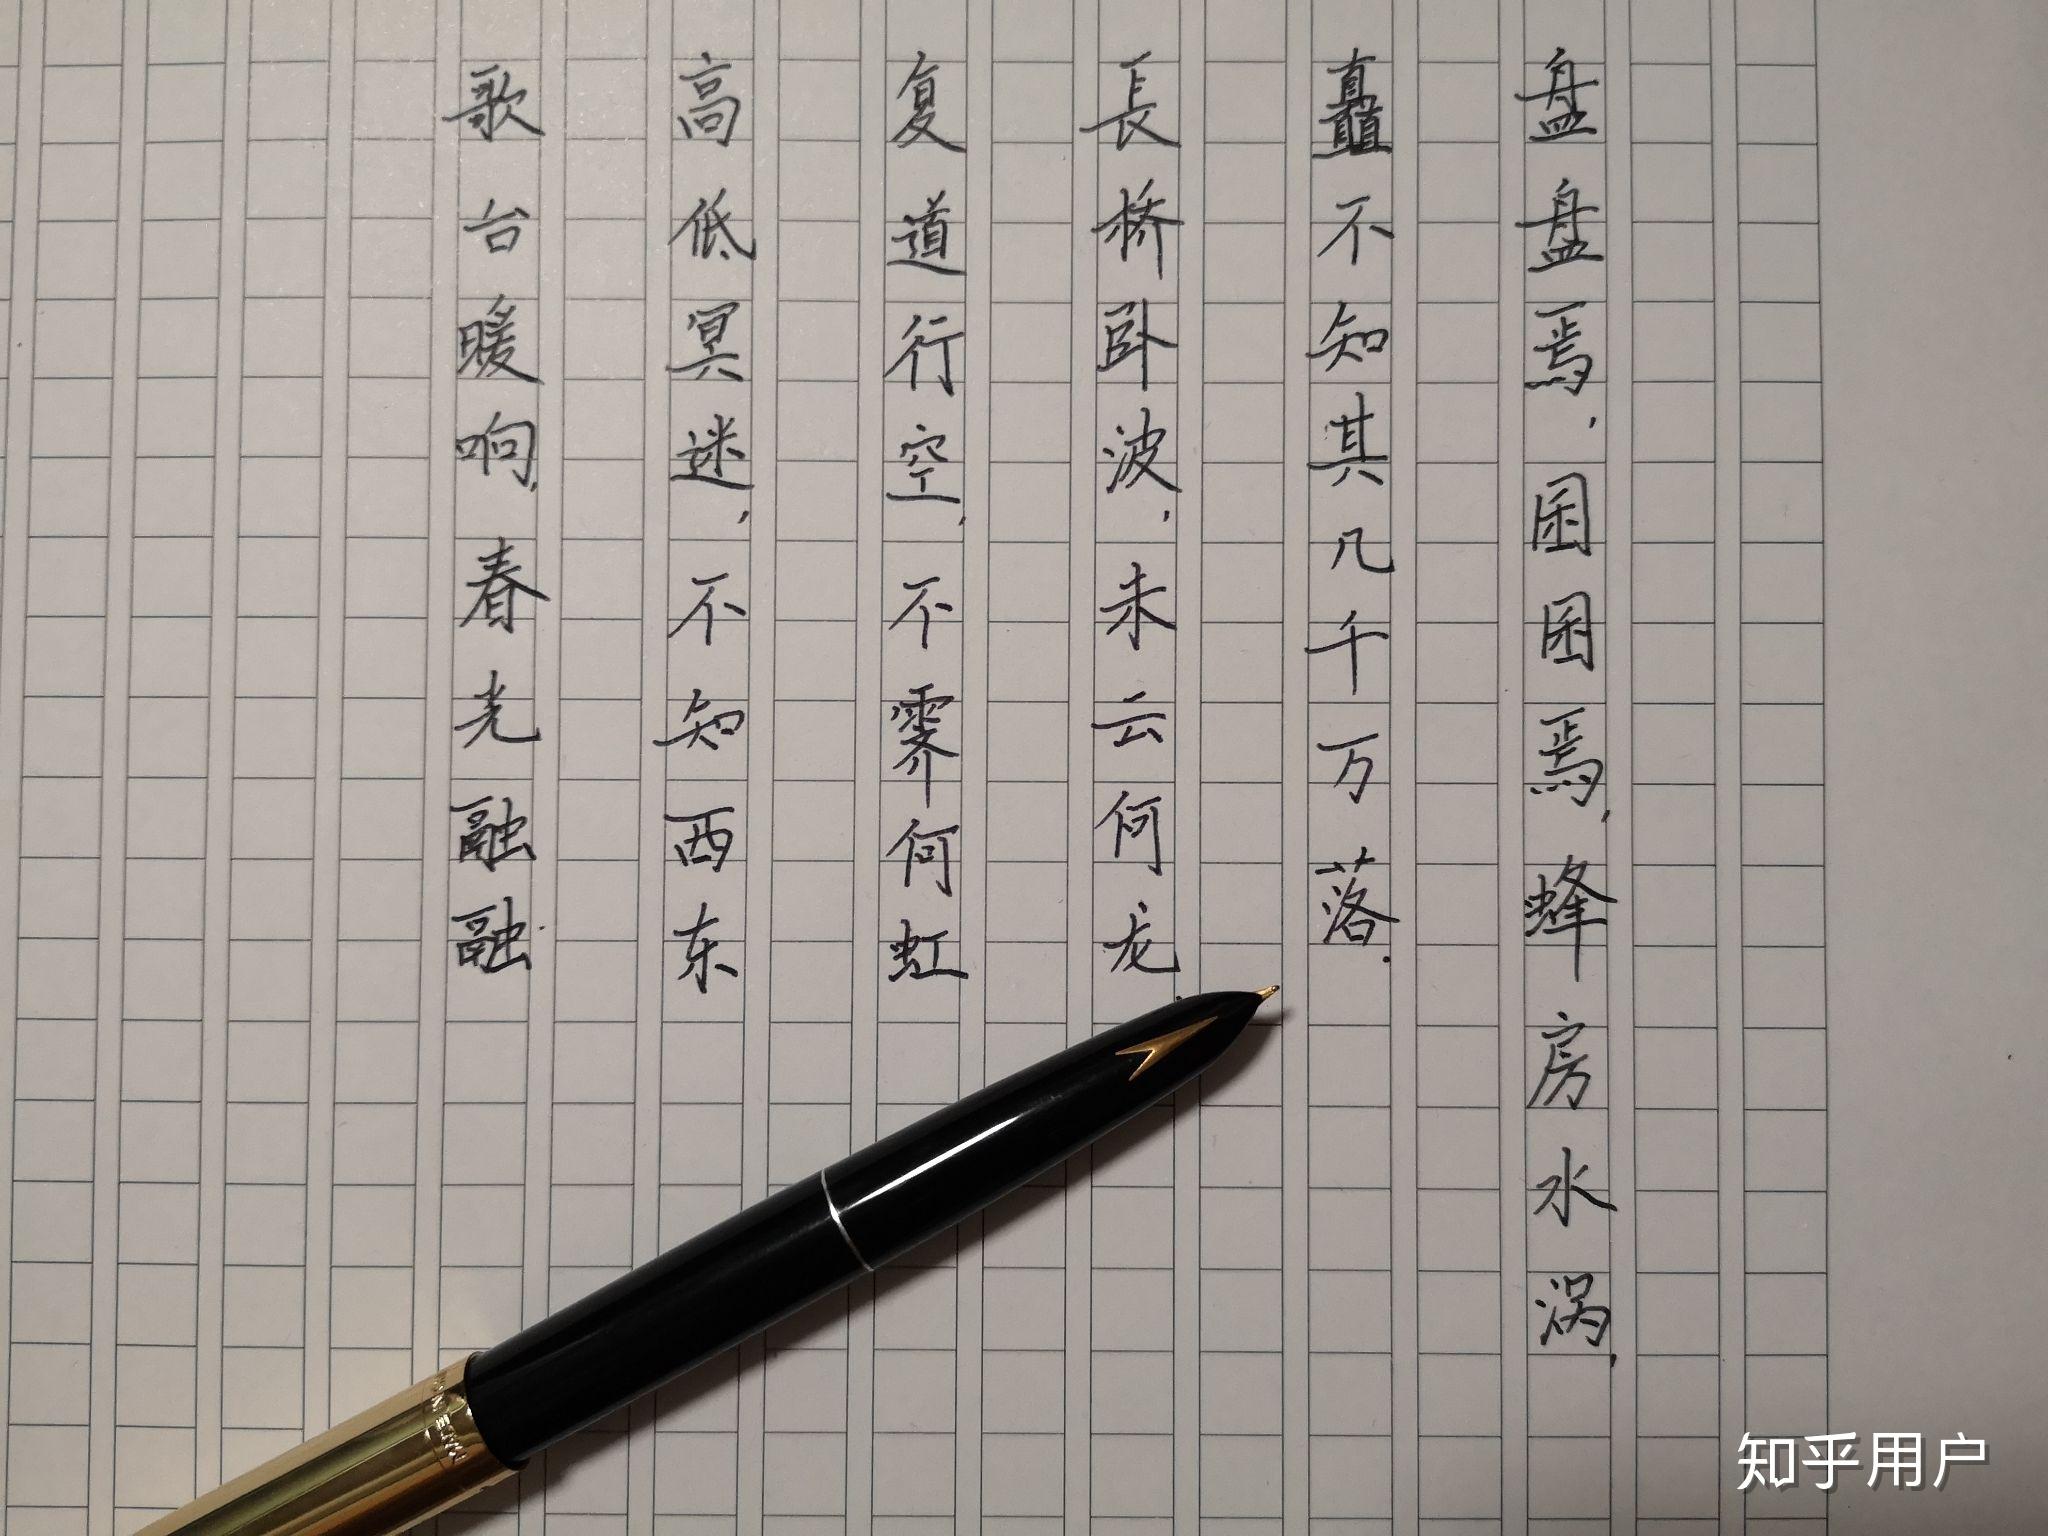 盘盘焉，困困焉，蜂房水涡，
矗不知其几千万落.
長桥卧波，未云何龙
复道行空，不霁何虹
高低冥迷，不知西东
歌台暖响，春光融融
知乎用户